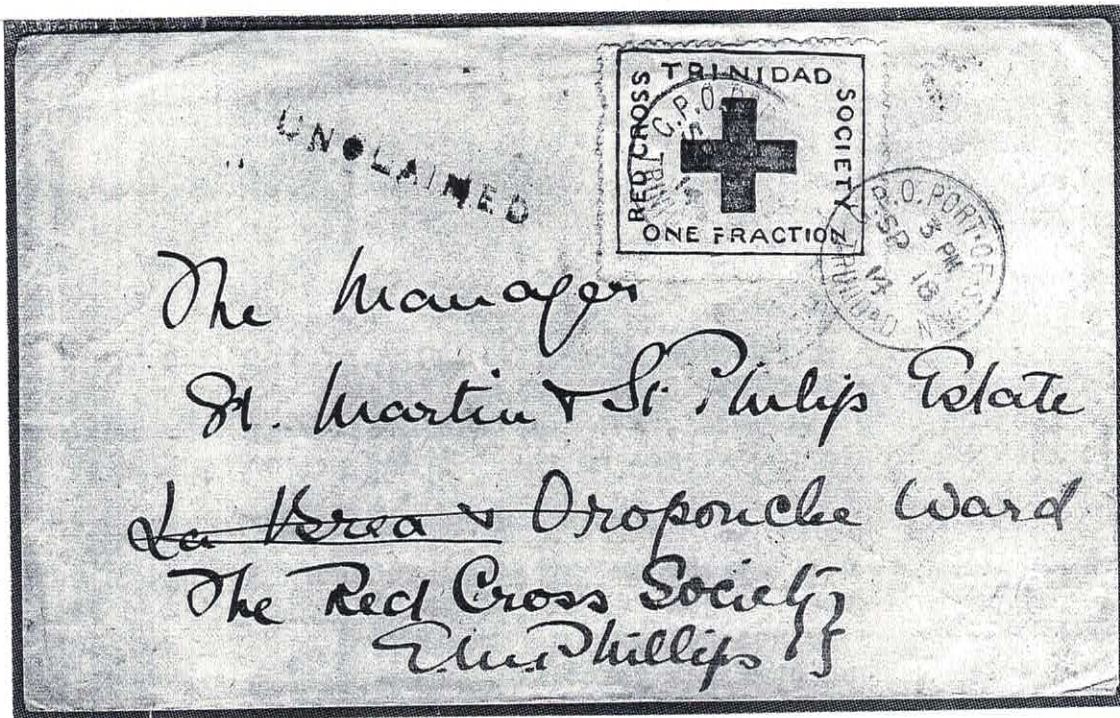 UNCLAIMED
TRINIDAD
RED CROSS
SOCIETY
ONE FRACTION
G.P.O.
TRINI
G.P.O. PORT-OF-SPAIN
3 PM
SP 18
14
TRINIDAD
The Manager
St. Martin & St. Philip Estate
La Brea & Oropouche Ward
The Red Cross Society
Phillips